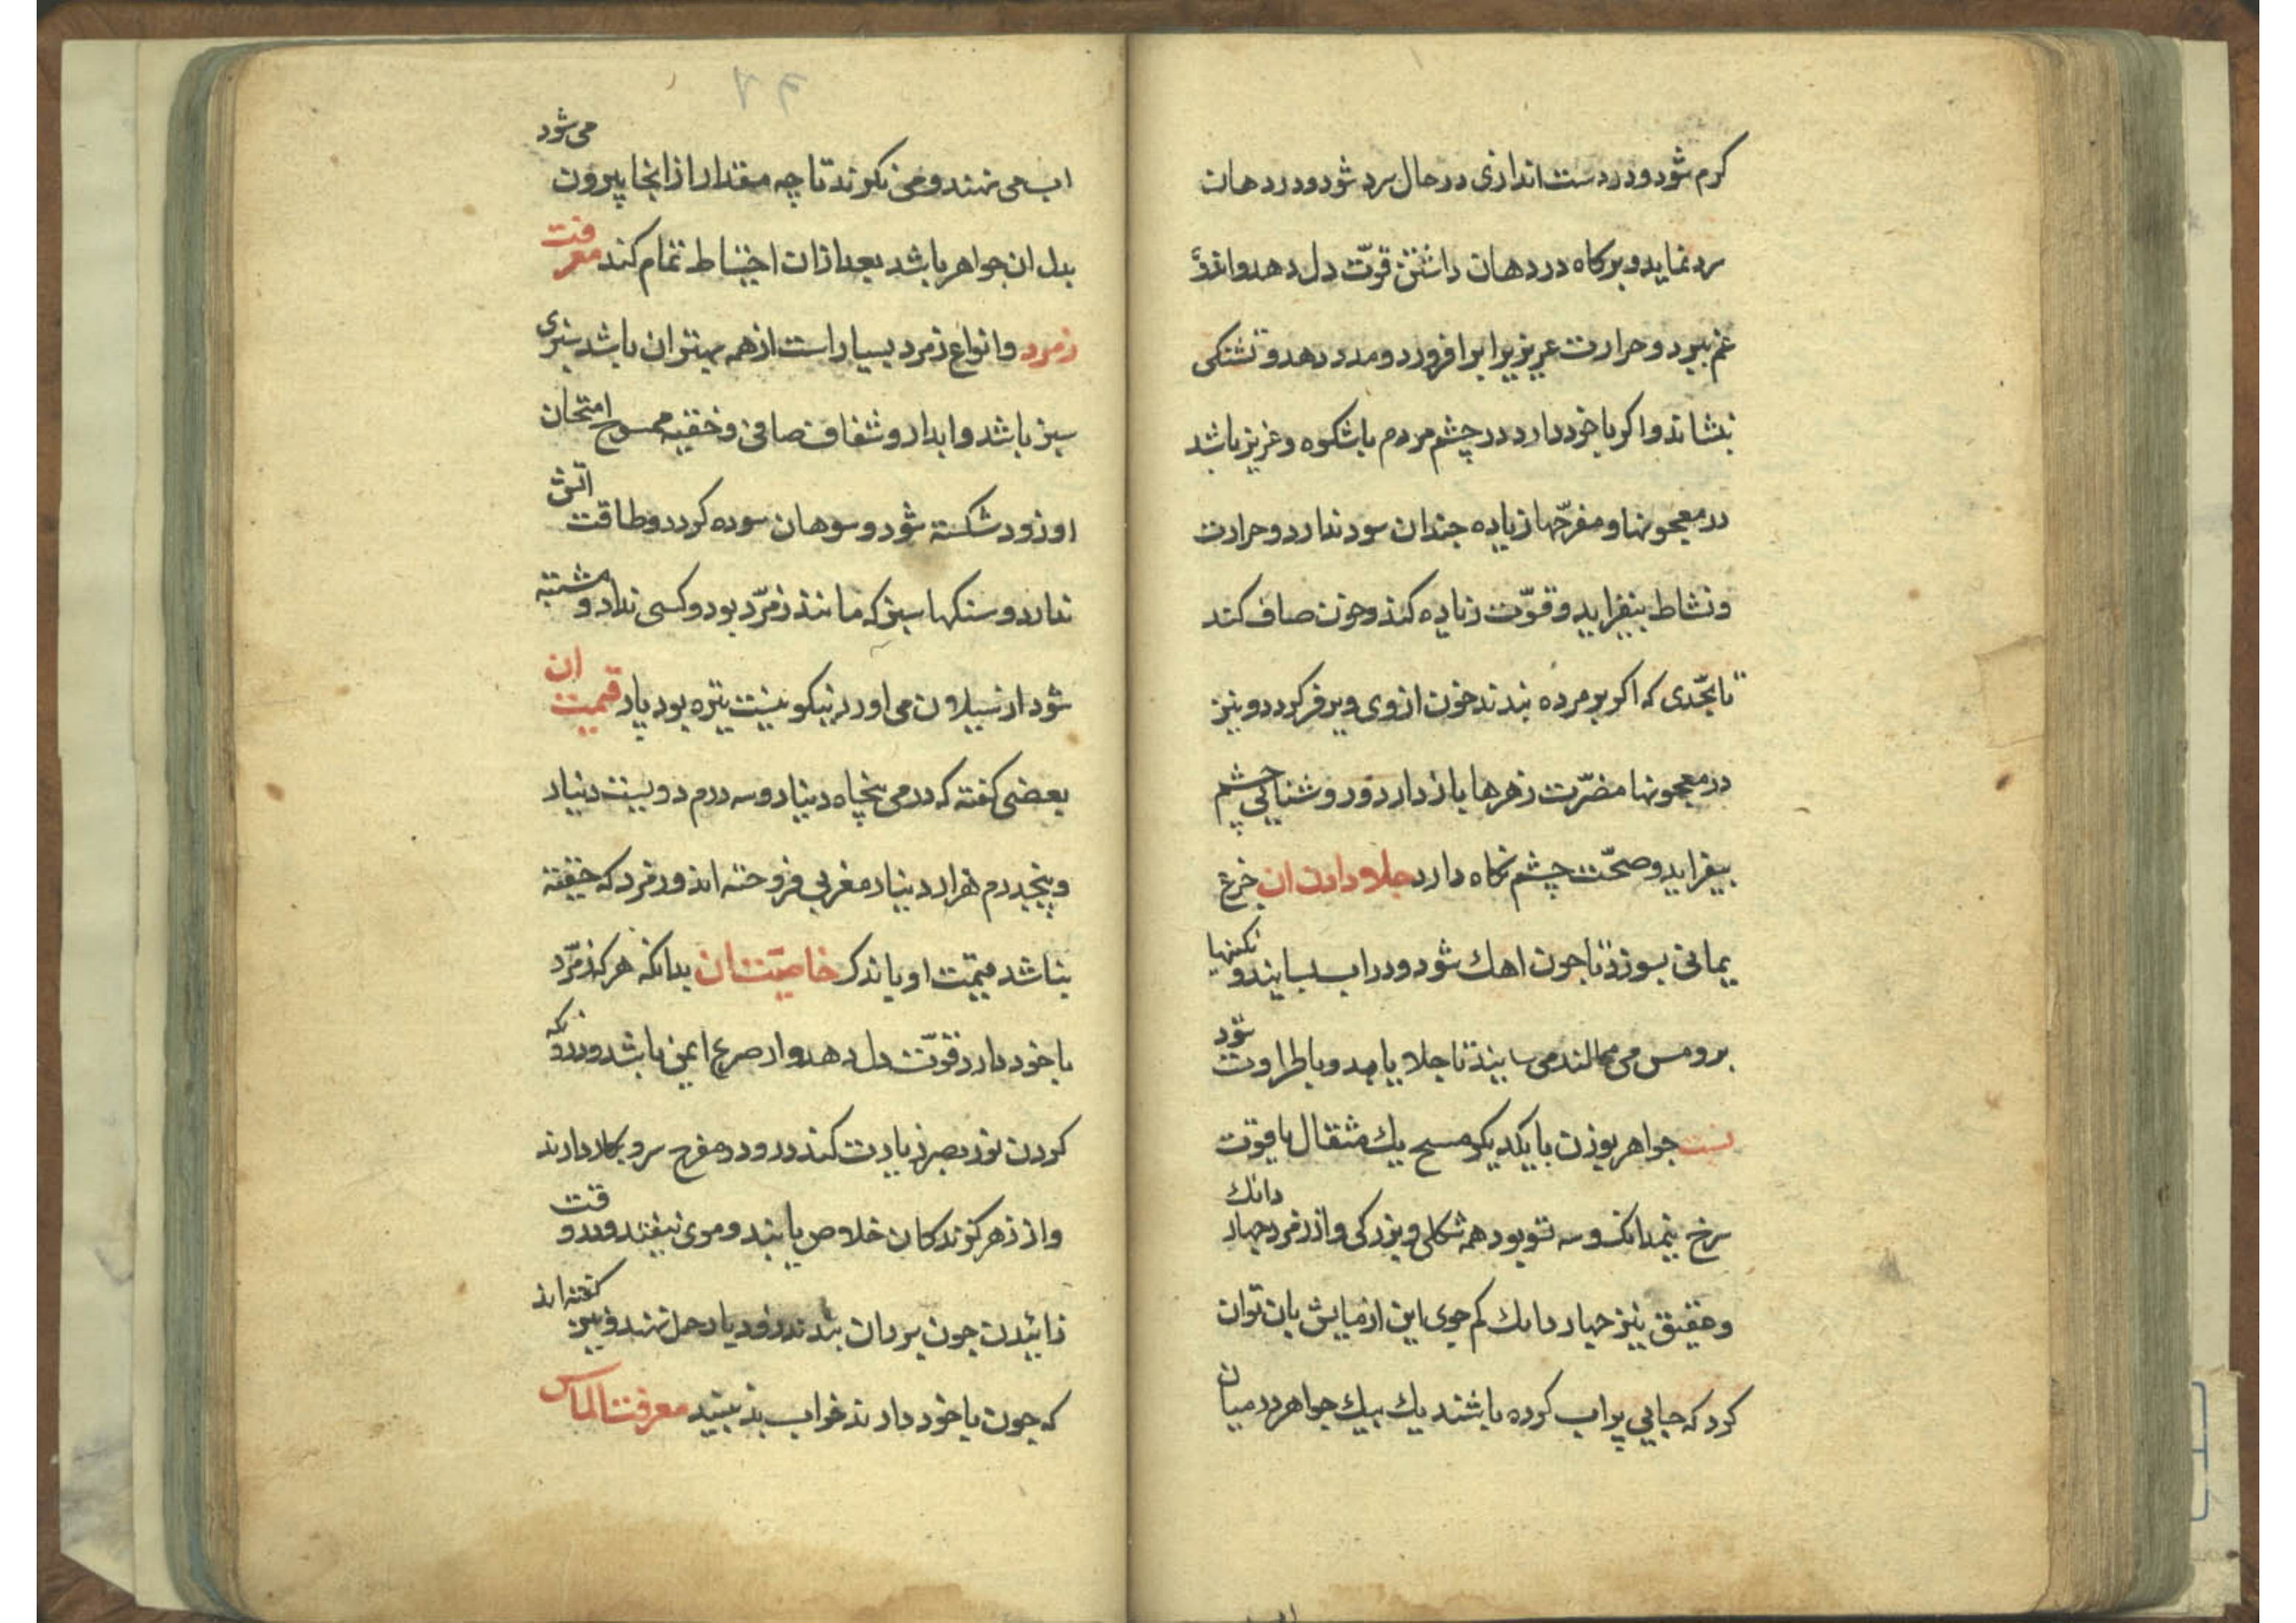 کرم شود و در دست اندازی در حال سرد شود و در دهان
سرد نماید و بر کاه در دهان داشتن قوّت دل دهد و اندوه
غم ببرد و حرارت غریزیرا برافروزد و مدد دهد و تشنکی
بنشاند و اکر با خود دارد در چشم مردم با شکوه و عزیز باشد
در معجونها و مفرّحها زیاده چندان سود ندارد و حرارت
و نشاط بیفزاید و قوّت زیاده کند و خون صاف کند
تا بحّدی که اکر بر مرده بندند خون از وی کردد و نیز
در معجونها مضرّت زهرها باز دارد و روشنایی چشم
بیفزاید و صحّت چشم نکاه دارد جلا دادن ان جزع
یمانی بسوزد تا چون اهك شود و در اب بسایند و نکینها
بر و مس می مالند می سایند تا جلا یابد و با طراوت شود
نسبت جواهر بوزن با یکدیکر مسح یك مثقال یاقوت
سرخ نیمدانک و سه تسو بود هم شکلی و بزرکی و از زمرد چهار دانك
و عقیق نیز چهار دانك کم جوی این ازمایش بان توان
کرد که جایی پر اب کرده باشند یك بیك جواهر در میان
اب می نهند و می نکرند تا چه مقدار از انجا بیرون می شود
بدل ان جواهر باشد بعد از ان احتیاط تمام کند معرفت
زمرد و انواع زمرد بسیار است از همه بهتر ان باشد سبزی
سبز باشد و ابدار و شفاف صافی و ممسوح امتحان
او زود شکسته شود و سوهان سوده کردد و طاقت اتش
ندارد و سنکها سبز که مانند زمرّد بود و کسی نداد و مشتبه
شود از سیلان می اورند نیکو نیست تیره بود یاد قیمت ان
بعضی کفته که درمی پنجاه دینار و سه درم دویست دینار
و پنجدرم هزار دینار مغربی فروخته اند و زمرد که
نباشد قیمت او یاد کر خاصیّت ان بدانکه هر که زمرّد
با خود دارد قوّت دل دهد و از صرع ایمن باشد و در و نکه
کردن نور بصر زیادت کند و در مفرح سرو بکار دارند
و از زهر کزندکان خلاص یابند و موی نیفتد و در وقت
زاییدن چون بر ران بندند زود بار حمل نهند و نیز کفته اند
که چون با خود دارند خواب بد نبیند معرفت الماس